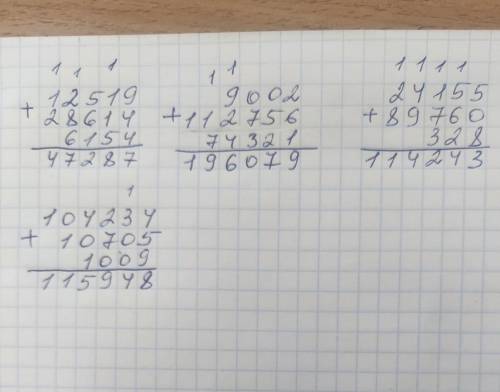 1 1 1
12519
+ 28614
6154
47287
1 1
9002
+ 112756
74321
196079
1 1 1 1
24155
+ 89760
328
114243
1
104234
+ 10705
1009
115948